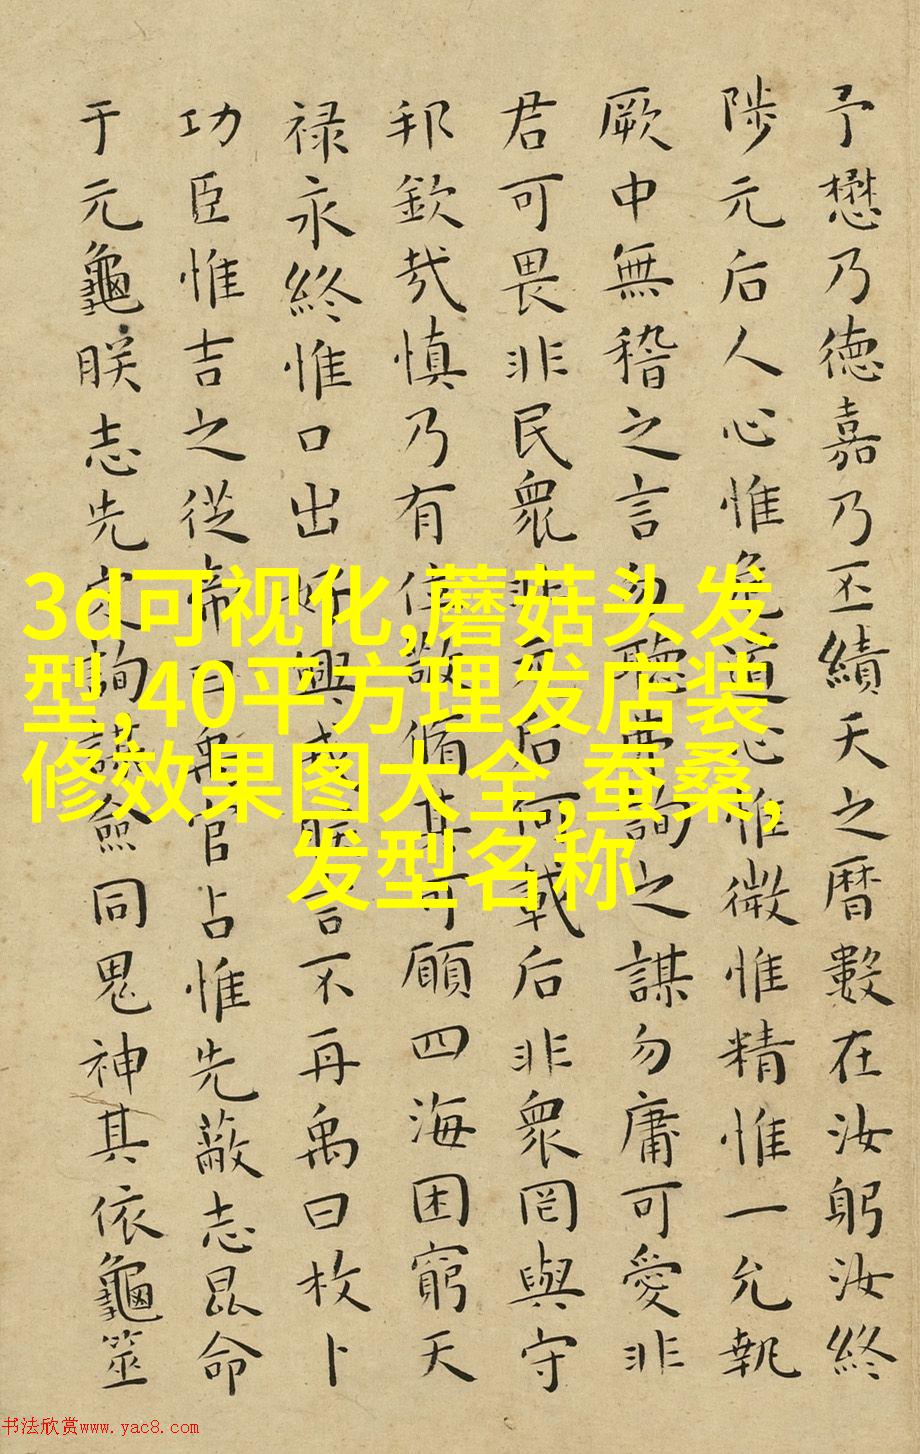 予懋乃德嘉乃丕績天之曆數在汝躬汝終
陟元后人心惟危道心惟微惟精惟一允執
厥中無稽之言勿聽弗詢之謀勿庸可愛非
君可畏非民衆非元后何戴后非衆罔與守
邦欽哉慎乃有位敬脩其可願四海困窮天
禄永終惟口出好興戎朕言不再禹曰枚卜
功臣惟吉之從帝曰禹官占惟先蔽志昆命
于元龜朕志先定詢謀僉同鬼神其依龜筮
3d可视化,蘑菇头发
型,40平方理发店装
修效果图大全,蚕桑,
发型名称
书法欣赏www.yac8.com